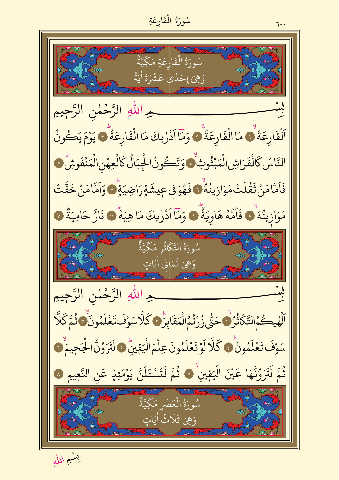 سُورَةُ الْقَارِعَةِ
٦٠٠
سُورَةُ الْقَارِعَةِ مَكِّيَّةٌ
وَهِيَ إِحْدَى عَشْرَةَ اٰيَةً
بِسْمِ اللهِ الرَّحْمٰنِ الرَّحِيمِ
اَلْقَارِعَةُ ۙ مَا الْقَارِعَةُ ۚ وَمَٓا اَدْرٰيكَ مَا الْقَارِعَةُ ۜ يَوْمَ يَكُونُ
النَّاسُ كَالْفَرَاشِ الْمَبْثُوثِ ۙ وَتَكُونُ الْجِبَالُ كَالْعِهْنِ الْمَنْفُوشِ ۜ
فَاَمَّا مَنْ ثَقُلَتْ مَوَازِينُهُ ۙ فَهُوَ فِى عِيشَةٍ رَاضِيَةٍ ۜ وَاَمَّا مَنْ خَفَّتْ
مَوَازِينُهُ ۙ فَاُمُّهُ هَاوِيَةٌ ۜ وَمَٓا اَدْرٰيكَ مَا هِيَهْ ۜ نَارٌ حَامِيَةٌ
سُورَةُ التَّكَاثُرِ مَكِّيَّةٌ
وَهِيَ ثَمَانِ اٰيَاتٍ
بِسْمِ اللهِ الرَّحْمٰنِ الرَّحِيمِ
اَلْهٰيكُمُ التَّكَاثُرُ ۙ حَتّٰى زُرْتُمُ الْمَقَابِرَ ۜ كَلَّا سَوْفَ تَعْلَمُونَ ۙ ثُمَّ كَلَّا
سَوْفَ تَعْلَمُونَ ۜ كَلَّا لَوْ تَعْلَمُونَ عِلْمَ الْيَقِينِ ۜ لَتَرَوُنَّ الْجَحِيمَ ۙ
ثُمَّ لَتَرَوُنَّهَا عَيْنَ الْيَقِينِ ۙ ثُمَّ لَتُسْـَٔلُنَّ يَوْمَئِذٍ عَنِ النَّعِيمِ
سُورَةُ الْعَصْرِ مَكِّيَّةٌ
وَهِيَ ثَلَاثُ اٰيَاتٍ
بِسْمِ اللهِ